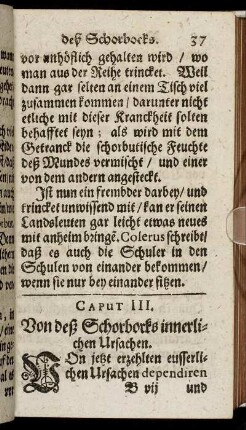 deß Schorbocks. 37
vor unhöflich gehalten wird / wo
man aus der Reihe trincket. Weil
dann gar selten an einem Tisch viel
zusammen kommen / darunter nicht
etliche mit dieser Kranckheit solten
behafftet seyn; als wird mit dem
Getranck die schorbutische Feuchte
deß Mundes vermischt / und einer
von dem andern angesteckt.
Ist nun ein frembder darbey / und
trincket unwissend mit / kan er seinen
Landsleuten gar leicht etwas neues
mit anheim bringē. Golerus schreibt /
daß es auch die Schuler in den
Schulen von einander bekommen /
wenn sie nur bey einander sitzen.
CAPUT III.
Von deß Schorbocks innerli-
chen Ursachen.
VOn jetzt erzehlten eusserli-
chen Ursachen dependiren
B vij und